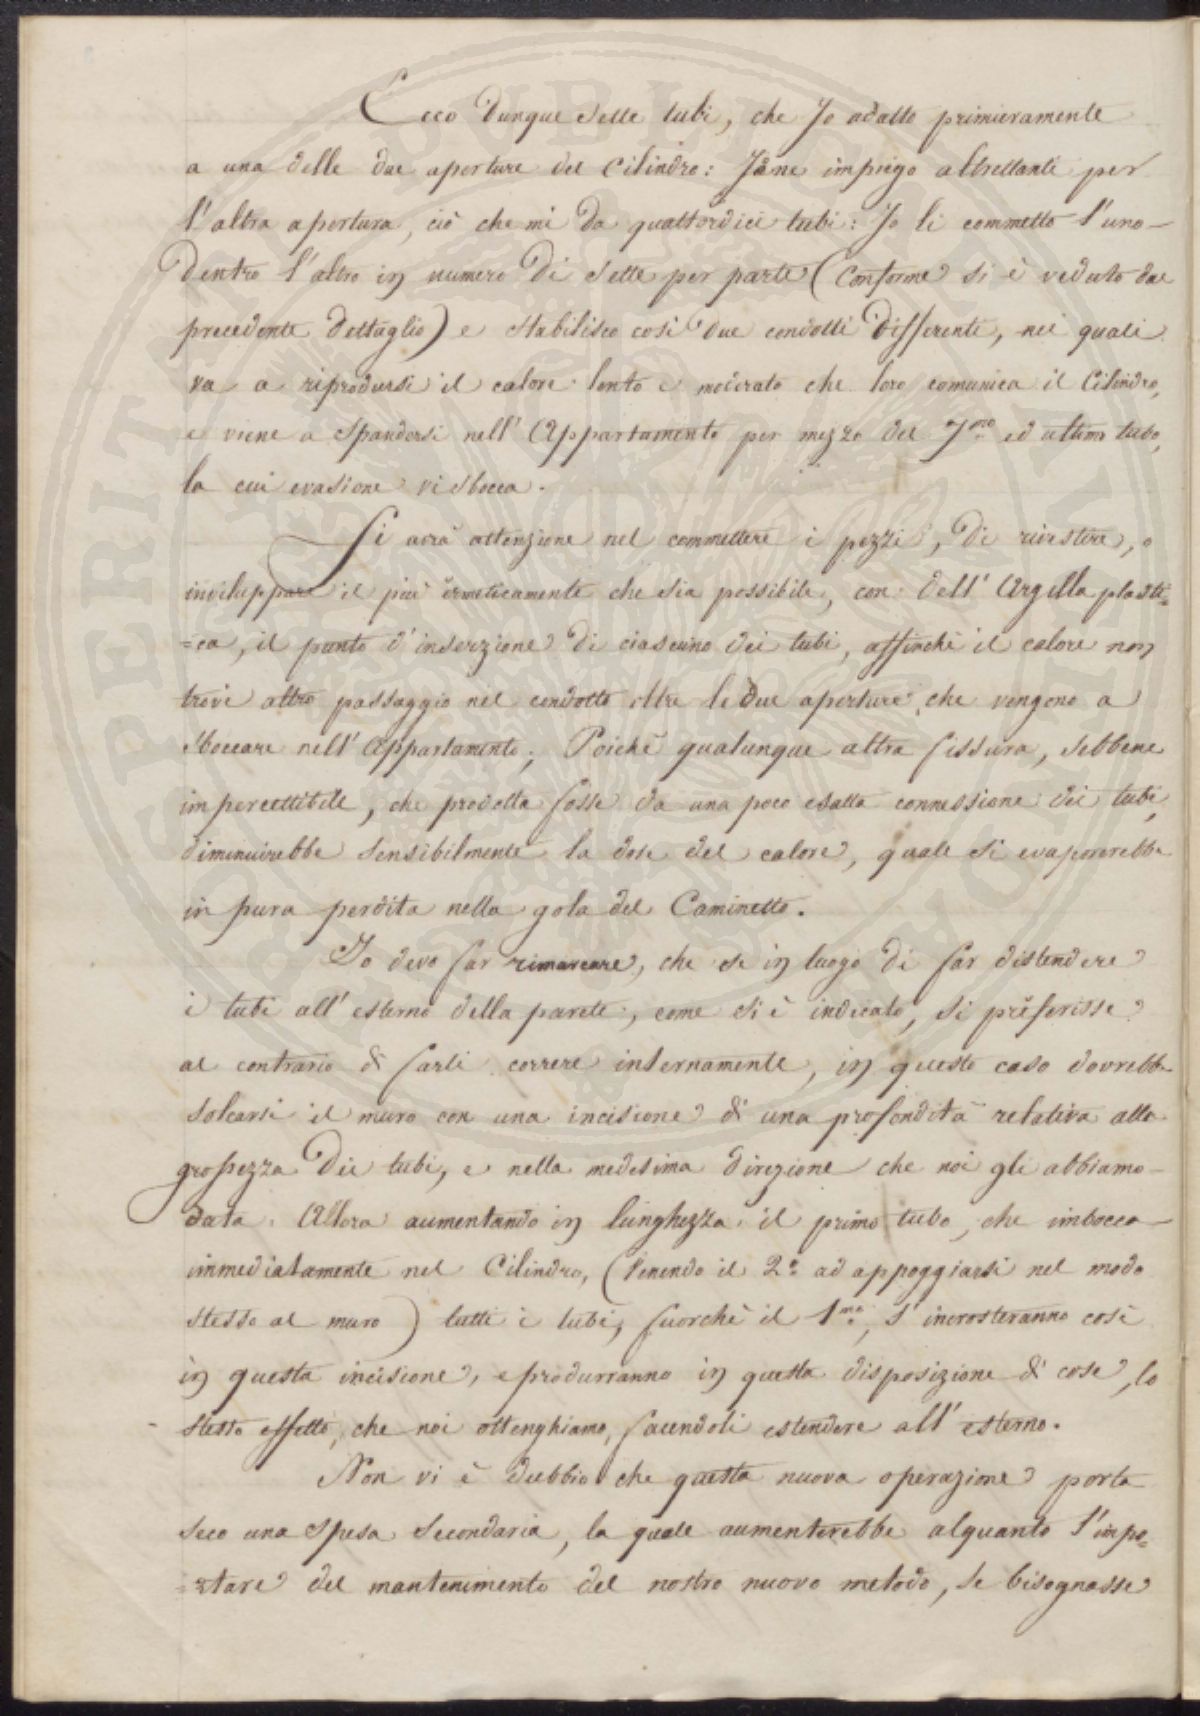 Ecco dunque sette tubi, che Io adatto primieramente
a una delle due aperture del Cilindro: Io ne impiego altrettanti per
l'altra apertura, ciò che mi da quattordici tubi: Io li commetto l'uno
dentro l'altro in numero di sette per parte (Conforme si è veduto dal
precedente dettaglio) e stabilisco così due condotti differenti, nei quali
va a riprodursi il calore lento e moderato che loro comunica il Cilindro,
e viene a spandersi nell'Appartamento per mezzo del 7.mo ed ultimo tubo,
la cui evasione vi sbocca.
Si avrà attenzione nel commettere i pezzi, di rivestire, o
inviluppare il più ermeticamente che sia possibile, con dell'Argilla plasti=
=ca, il punto d'inserzione di ciascuno dei tubi, affinchè il calore non
trovi altro passaggio nel condotto oltre le due aperture, che vengono a
sboccare nell'Appartamento; Poichè qualunque altra fissura, sebbene
impercettibile, che prodotta fosse da una poco esatta connessione dei tubi,
diminuirebbe sensibilmente la dose del calore, quale si evaporerebbe
in pura perdita nella gola del Caminetto.
Io devo far rimarcare, che se in luogo di far distendere
i tubi all'esterno della parete, come si è indicato, si preferisse
al contrario di farli correre internamente, in questo caso dovrebbe
solcarsi il muro con una incisione di una profondità relativa alla
grossezza dei tubi, e nella medesima direzione che noi gli abbiamo
data. Allora aumentando in lunghezza il primo tubo, che imbocca
immediatamente nel Cilindro, (Venendo il 2.o ad appoggiarsi nel modo
stesso al muro) tutti i tubi, fuorchè il 1.mo, s'incrosteranno così
in questa incisione, e produrranno in questa disposizione di cose, lo
stesso effetto, che noi ottenghiamo, facendoli estendere all'esterno.
Non vi è dubbio che questa nuova operazione porta
seco una spesa secondaria, la quale aumenterebbe alquanto l'impo=
=rtare del mantenimento del nostro nuovo metodo, se bisognasse